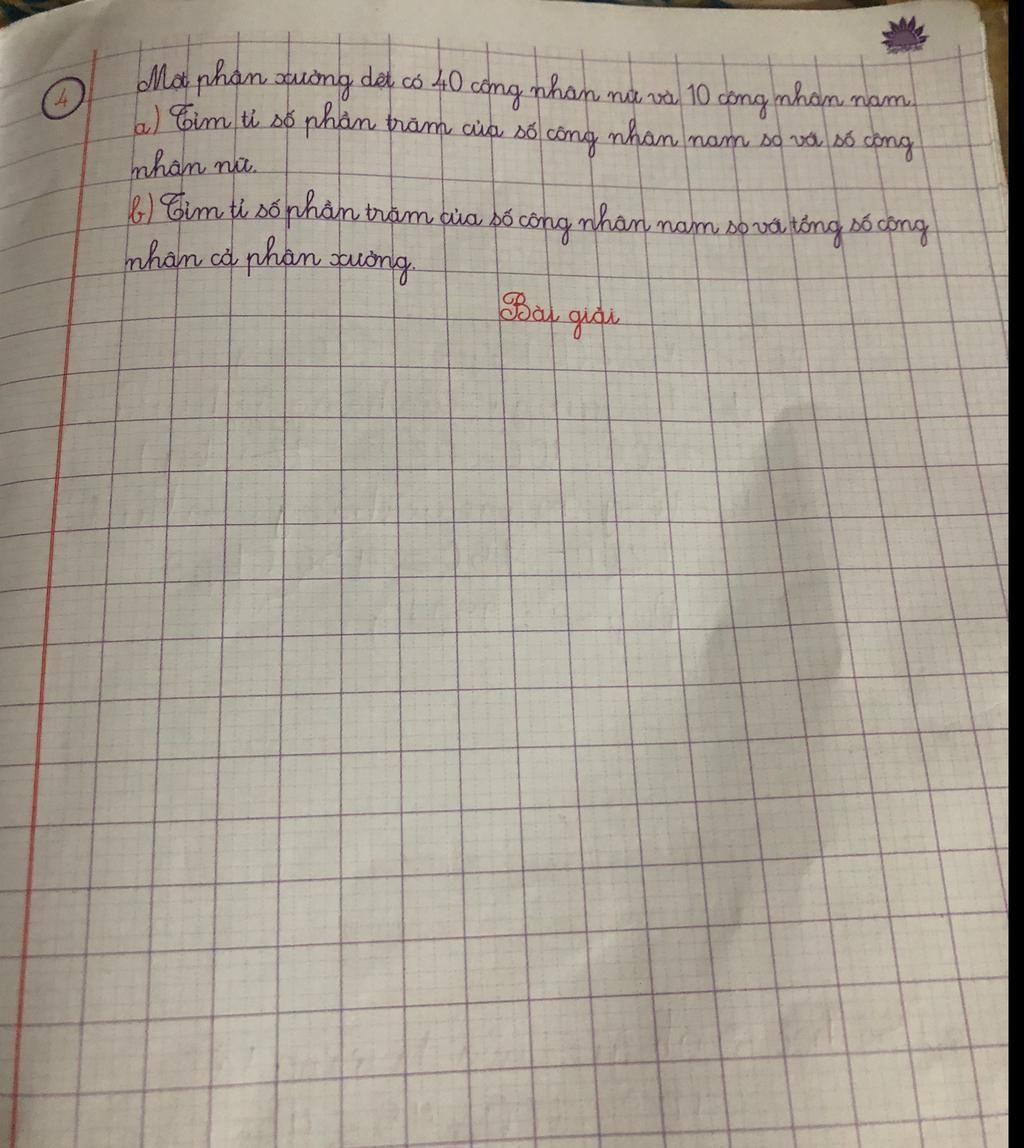 4
Một phân xưởng dệt có 40 công nhân nữ và 10 công nhân nam
a) Tìm tỉ số phần trăm của số công nhân nam so với số công
nhân nữ.
b) Tìm tỉ số phần trăm của số công nhân nam so với tổng số công
nhân cả phân xưởng.
Bài giải